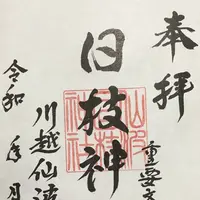 奉拝
重要文
日枝神
川越仙波
令和 年 月